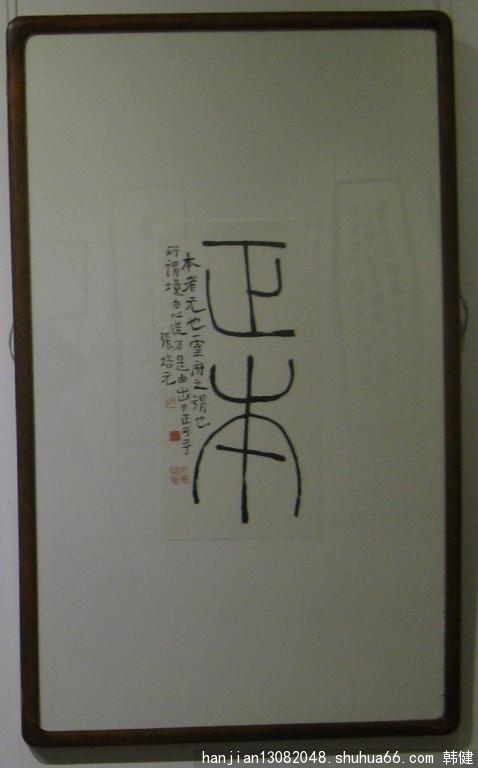 正本
本者元也靈府之謂也
所謂境由心造乃是由出不正可乎
張培元
hanjian13082048.shuhua66.com 韩健